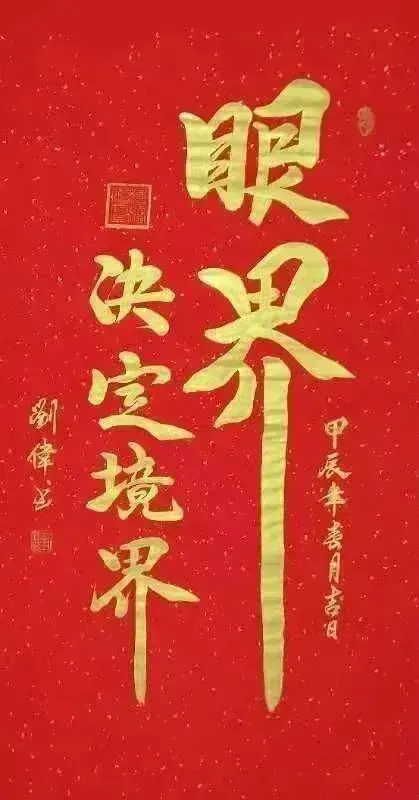 甲辰年春月吉日
眼界
决定境界
劉偉书